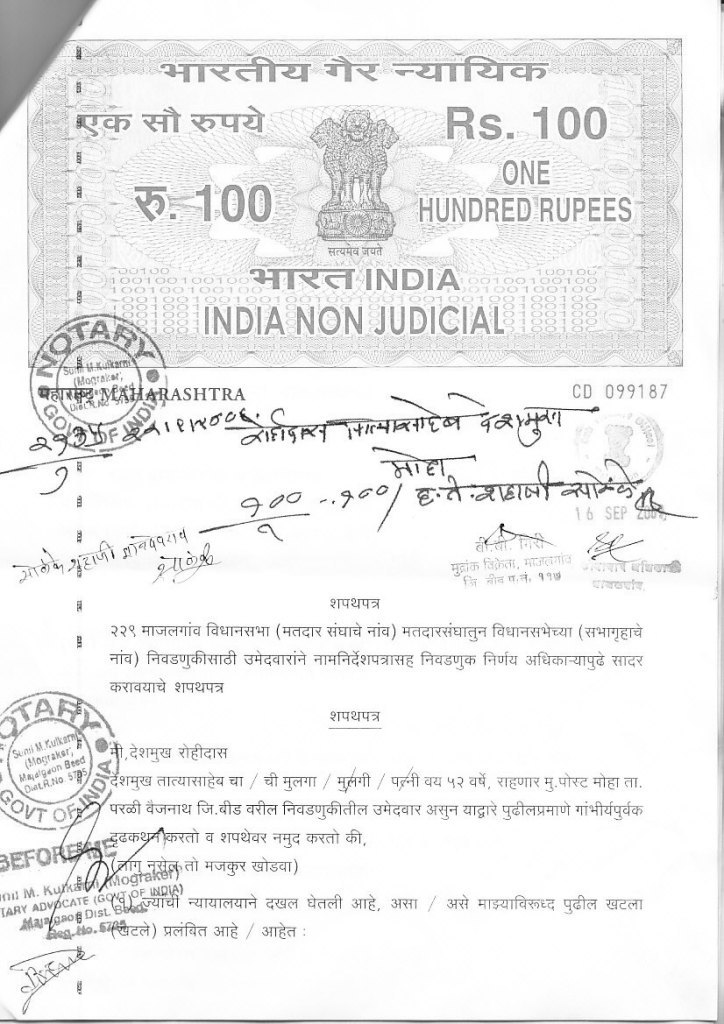 भारतीय गैर न्यायिक
एक सौ रुपये
Rs. 100
रु. 100
ONE
HUNDRED RUPEES
सत्यमेव जयते
भारत INDIA
INDIA NON JUDICIAL
महाराष्ट्र MAHARASHTRA
CD 099187
NOTARY
Sunil M.Kulkarni
(Mograker)
Majalgaon Beed
Dist.R.No. 5795
GOVT OF INDIA
देशमुख
मोहा
१००
१६ SEP
मुद्रांक विक्रेता, माजलगांव
शपथपत्र
२२९ माजलगांव विधानसभा (मतदार संघाचे नांव) मतदारसंघातुन विधानसभेच्या (सभागृहाचे
नांव) निवडणुकीसाठी उमेदवारांने नामनिर्देशपत्रासह निवडणुक निर्णय अधिकाऱ्यापुढे सादर
करावयाचे शपथपत्र
शपथपत्र
मी,देशमुख रोहीदास
देशमुख तात्यासाहेब चा / ची मुलगा / मुलगी / पत्नी वय ५२ वर्षे, राहणार मु.पोस्ट मोहा ता.
परळी वैजनाथ जि.बीड वरील निवडणुकीतील उमेदवार असुन याद्वारे पुढीलप्रमाणे गांभीर्यपुर्वक
दृढकथन करतो व शपथेवर नमुद करतो की,
(लागु नसेल तो मजकुर खोडवा)
(१) ज्यांची न्यायालयाने दखल घेतली आहे, असा / असे माझ्याविरूध्द पुढील खटला
(खटले) प्रलंवित आहे / आहेत :
NOTARY
Sunil M.Kulkarni
(Mograker)
Majalgaon Beed
Dist.R.No. 5795
GOVT OF INDIA
BEFORE ME
M. Kulkarni (Mograker)
ADVOCATE (GOVT OF INDIA)
Majalgaon Dist. Beed
Reg. No. 5795